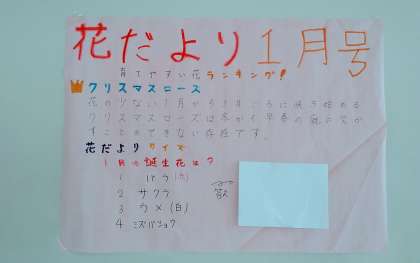 花だより1月号
育てやすい花ランキング!
クリスマスローズ
花の少ない1月から3月ごろに咲き始める
クリスマスローズは冬から早春の庭に欠か
すことのできない存在です。
花だよりクイズ
1月の誕生花は?
1 バラ
2 サクラ
3 ウメ(白)
4 ミズバショウ
答え